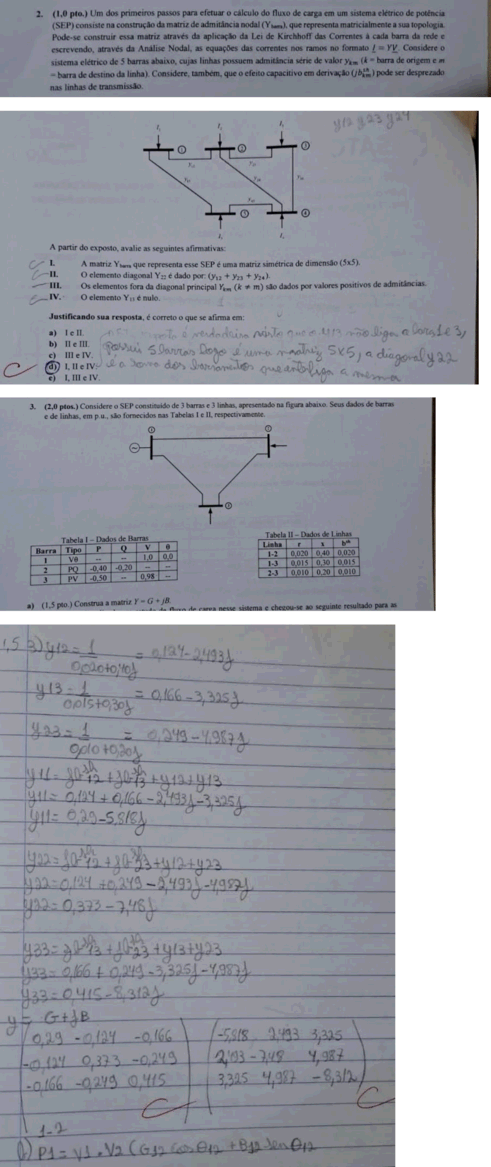 2. (1,0 pto.) Um dos primeiros passos para efetuar o cálculo do fluxo de carga em um sistema elétrico de potência
(SEP) consiste na construção da matriz de admitância nodal (Ybarra), que representa matricialmente a sua topologia.
Pode-se construir essa matriz através da aplicação da Lei de Kirchhoff das Correntes à cada barra da rede e
escrevendo, através da Análise Nodal, as equações das correntes nos ramos no formato I = YV. Considere o
sistema elétrico de 5 barras abaixo, cujas linhas possuem admitância série de valor ykm (k = barra de origem e m
= barra de destino da linha). Considere, também, que o efeito capacitivo em derivação (jb^sh_km) pode ser desprezado
nas linhas de transmissão.
y12 y23 y24
A partir do exposto, avalie as seguintes afirmativas:
I. A matriz Ybarra que representa esse SEP é uma matriz simétrica de dimensão (5x5).
II. O elemento diagonal Y22 é dado por: (y12 + y23 + y24).
III. Os elementos fora da diagonal principal Ykm (k ≠ m) são dados por valores positivos de admitâncias.
IV. O elemento Y13 é nulo.
Justificando sua resposta, é correto o que se afirma em:
a) I e II.
b) II e III.
c) III e IV.
d) I, II e IV.
e) I, III e IV.
é verdadeira visto que o y13 não liga a barra 1 e 3,
possuis 5 barras logo é uma matriz 5X5, a diagonal y22
é a soma dos barramentos que a mesma
3. (2,0 ptos.) Considere o SEP constituído de 3 barras e 3 linhas, apresentado na figura abaixo. Seus dados de barras
e de linhas, em p.u., são fornecidos nas Tabelas I e II, respectivamente.
Tabela I – Dados de Barras
Barra Tipo P Q V θ
1 Vθ -- -- 1,0 0,0
2 PQ -0,40 -0,20 -- --
3 PV -0,50 -- 0,98 --
Tabela II – Dados de Linhas
Linha r x b^sh
1-2 0,020 0,40 0,020
1-3 0,015 0,30 0,015
2-3 0,010 0,20 0,010
a) (1,5 pto.) Construa a matriz Y = G + jB.
fluxo de carga nesse sistema e chegou-se ao seguinte resultado para as
1,5 3) y12 = 1 / 0,020+0,40j = 0,124-2,493j
y13 = 1 / 0,015+0,30j = 0,166-3,325j
y23 = 1 / 0,010+0,20j = 0,249-4,987j
y11 = jb^sh_12 + jb^sh_13 + y12 + y13
y11 = 0,124 + 0,166 - 2,493j - 3,325j
y11 = 0,29 - 5,818j
y22 = jb^sh_12 + jb^sh_23 + y12 + y23
y22 = 0,124 + 0,249 - 2,493j - 4,987j
y22 = 0,373 - 7,48j
y33 = jb^sh_13 + jb^sh_23 + y13 + y23
y33 = 0,166 + 0,249 - 3,325j - 4,987j
y33 = 0,415 - 8,312j
y = G + jB
0,29 -0,124 -0,166 -5,818 2,493 3,325
-0,124 0,373 -0,249 2,493 -7,48 4,987
-0,166 -0,249 0,415 3,325 4,987 -8,312
1-2
b) P1 = V1 . V2 (G12 cos θ12 + B12 sen θ12